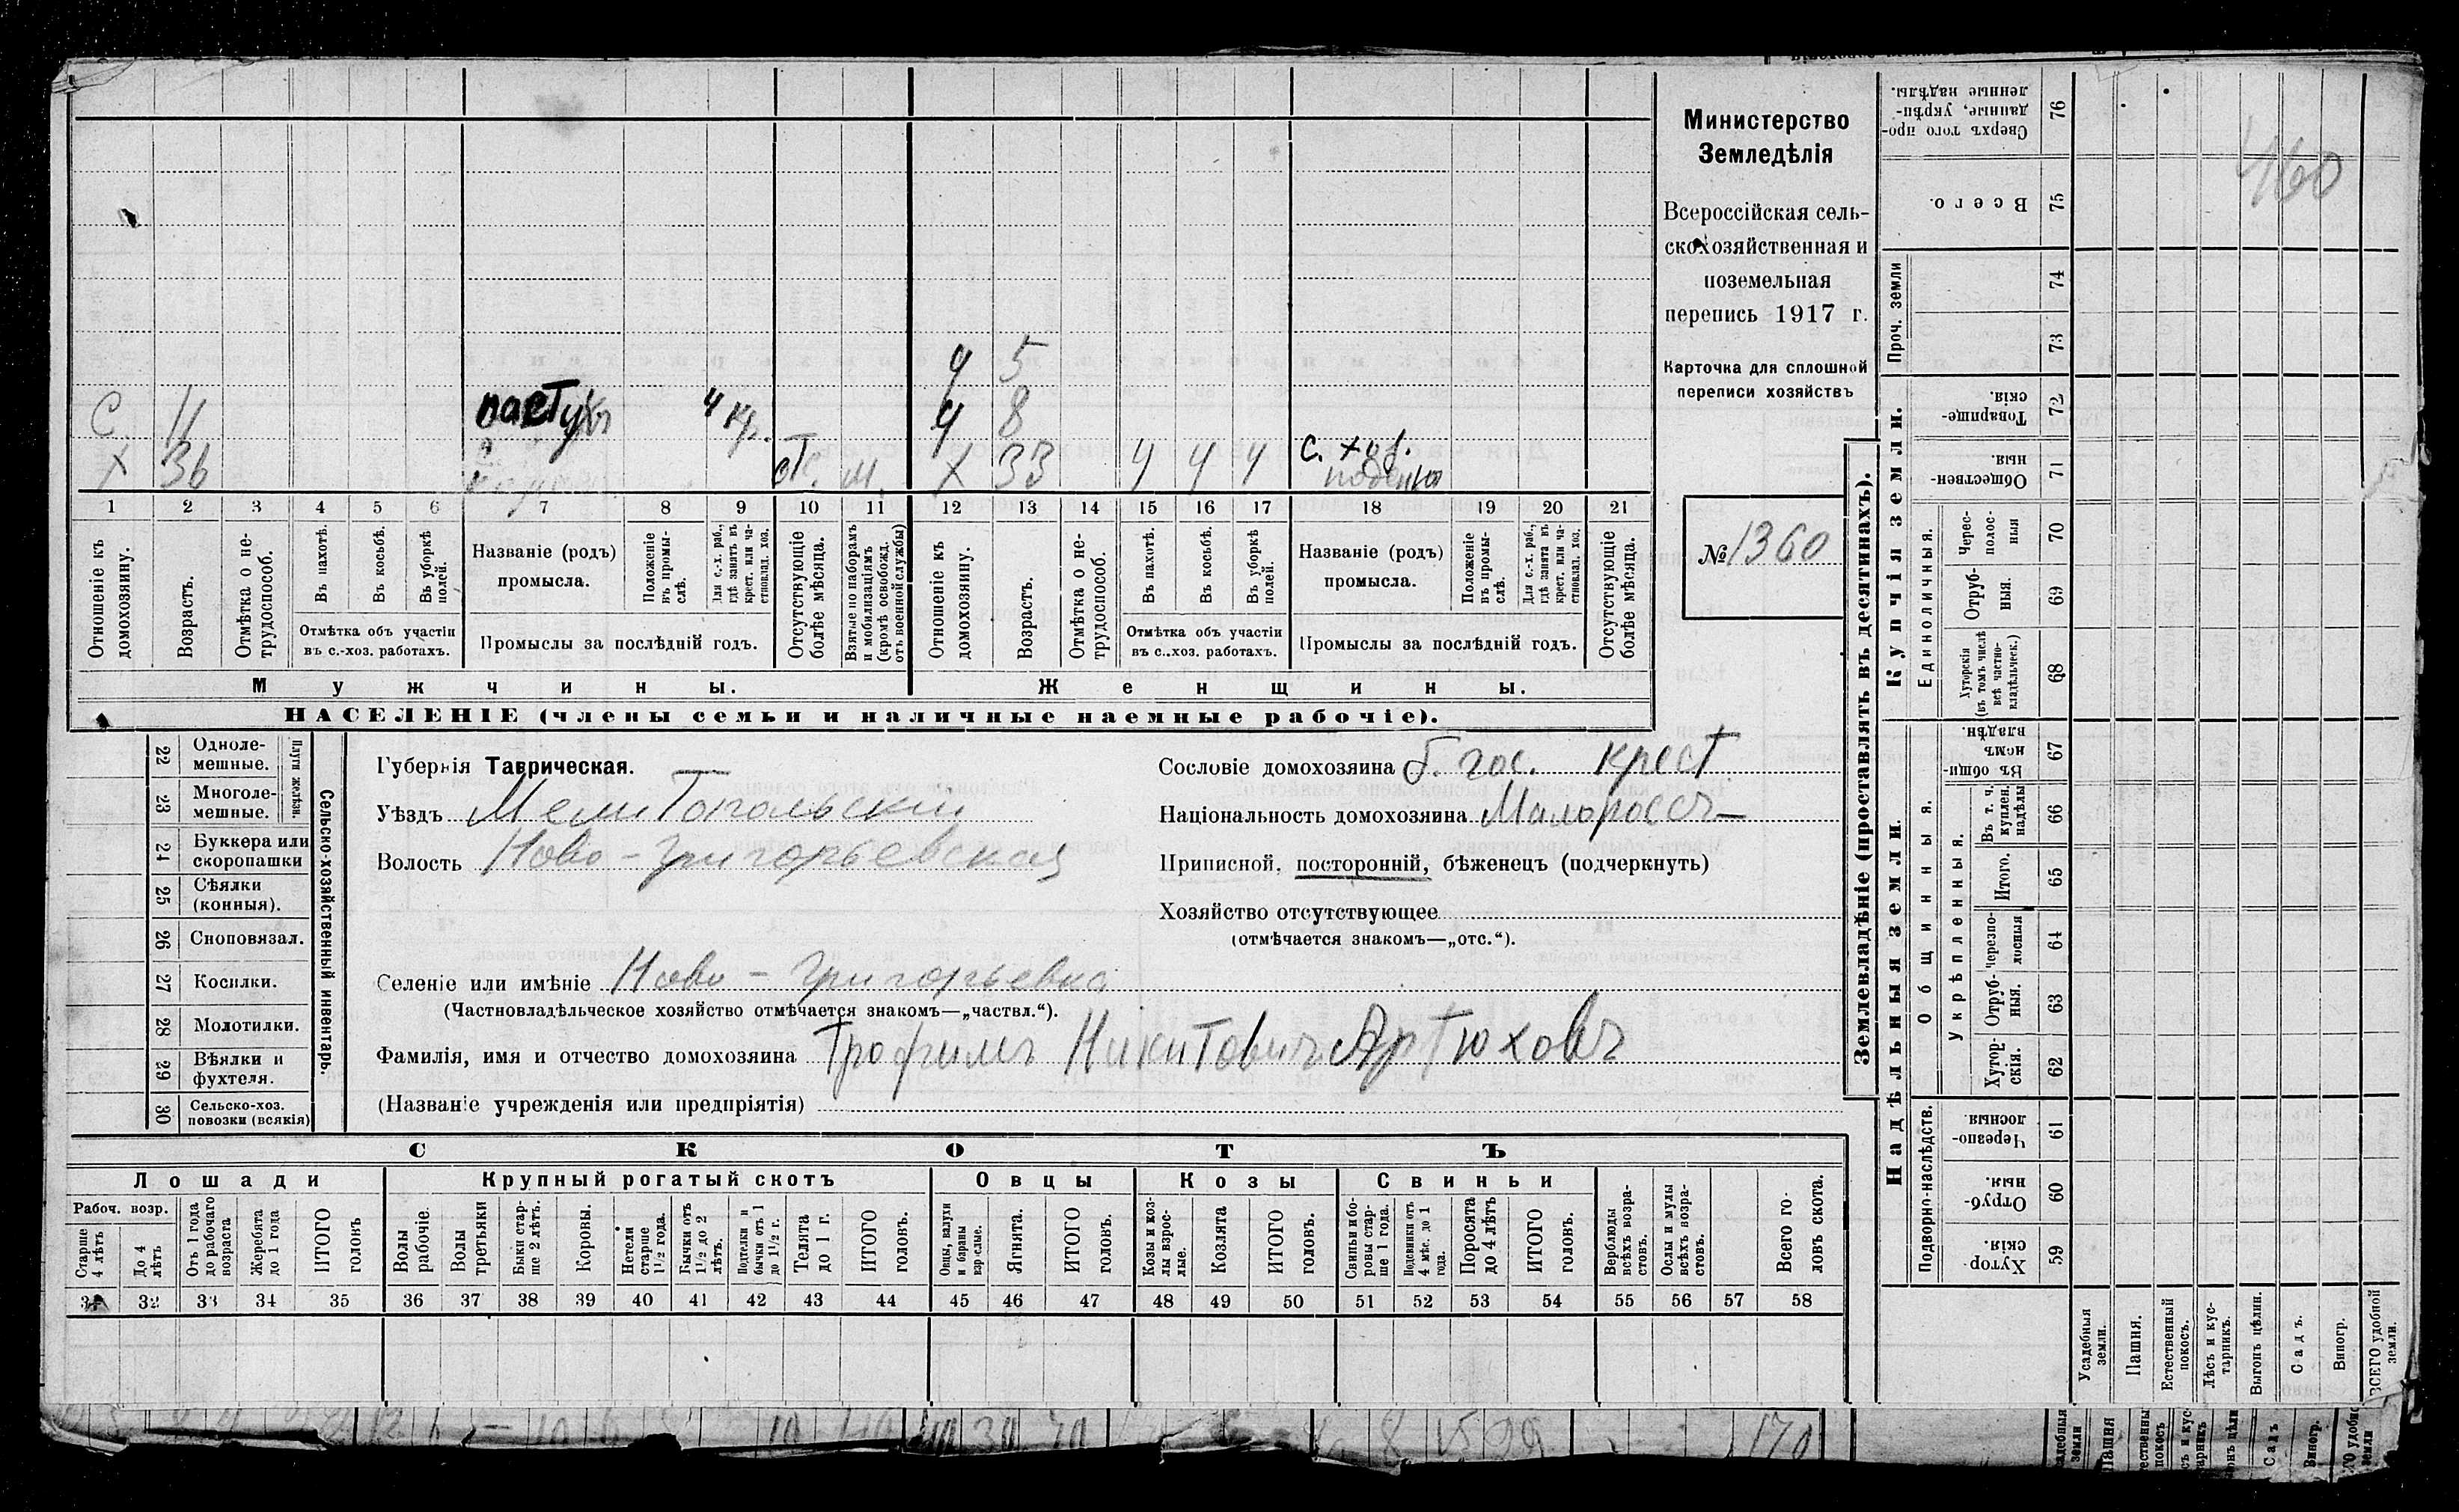 С 11 пастухъ ч кр. ч 5
ч 8
Х 36 отс. м. Х 33 ч ч ч с. хоз. поденка
1 2 3 4 5 6 7 8 9 10 11 12 13 14 15 16 17 18 19 20 21
Отношеніе къ домохозяину.
Возрастъ.
Отмѣтка о нетрудоспособ.
Въ пахотѣ.
Въ косьбѣ.
Въ уборкѣ полей.
Отмѣтка объ участіи
въ с.-хоз. работахъ.
Названіе (родъ)
промысла.
Положеніе въ промыслѣ.
Для с.-х. раб., гдѣ занятъ въ крест. или частновлад. хоз.
Промыслы за послѣдній годъ.
Отсутствующіе болѣе мѣсяца.
Взятые по наборамъ и мобилизаціямъ (кромѣ освобожд. отъ военной службы)
Отношеніе къ домохозяину.
Возрастъ.
Отмѣтка о нетрудоспособ.
Въ пахотѣ.
Въ косьбѣ.
Въ уборкѣ полей.
Отмѣтка объ участіи
въ с..хоз. работахъ.
Названіе (родъ)
промысла.
Положеніе въ промыслѣ.
Для с.-х. раб., гдѣ занята въ крест. или частновлад. хоз.
Промыслы за послѣдній годъ.
Отсутствующіе болѣе мѣсяца.
Мужчины. Женщины.
НАСЕЛЕНІЕ (члены семьи и наличные наемные рабочіе).
Министерство
Земледѣлія
Всероссійская сель-
скохозяйственная и
поземельная
перепись 1917 г.
Карточка для сплошной
переписи хозяйствъ
№ 1360
Сельско-хозяйственный инвентарь.
Плуги желѣзн.
22 Одноле-
мешные.
23 Многоле-
мешные.
24 Буккера или
скоропашки
25 Сѣялки
(конныя).
26 Сноповязал.
27 Косилки.
28 Молотилки.
29 Вѣялки и
фухтеля.
30 Сельско-хоз.
повозки (всякія)
Губернія Таврическая.
Уѣздъ Мелитопольскій
Волость Ново-Григорьевская
Селеніе или имѣніе Ново-Григорьевка
(Частновладѣльческое хозяйство отмѣчается знакомъ—„частвл.“).
Фамилія, имя и отчество домохозяина Трофимъ Никитовичъ Артюховъ
(Названіе учрежденія или предпріятія)
Сословіе домохозяина б. гос. крест.
Національность домохозяина Малороссъ
Приписной, посторонній, бѣженецъ (подчеркнуть)
Хозяйство отсутствующее
(отмѣчается знакомъ—„отс.“).
СКОТЪ
Лошади Крупный рогатый скотъ Овцы Козы Свиньи
Рабоч. возр.
Старше 4 лѣтъ
До 4 лѣтъ
Отъ 1 года до рабочаго возраста
Жеребята до 1 года
ИТОГО головъ
Волы рабочіе.
Волы третьяки
Быки старше 2 лѣтъ.
Коровы.
Нетели старше 1½ года.
Бычки отъ 1½ до 2 лѣтъ.
Подтелки и бычки отъ 1 до 1½ г.
Телята до 1 г.
ИТОГО головъ.
Овцы, валухи и бараны взрослые.
Ягнята.
ИТОГО головъ.
Козы и козлы взрослые.
Козлята
ИТОГО головъ.
Свиньи и боровы старше 1 года.
Подсвинки отъ 4 мѣс. до 1 года.
Поросята до 4 лѣтъ
ИТОГО головъ.
Верблюды всѣхъ возрастовъ.
Ослы и мулы всѣхъ возрастовъ.
Всего головъ скота.
31 32 33 34 35 36 37 38 39 40 41 42 43 44 45 46 47 48 49 50 51 52 53 54 55 56 57 58
Землевладѣніе (проставлять въ десятинахъ).
Купчія земли.
Проч. земли
Единоличныя.
Надѣльныя земли.
Общинныя.
Укрѣпленныя.
Подворно-наслѣдств.
76 Сверхъ того проданные, укрѣпленные надѣлы.
75 Всего.
74
73
72 Товарищескія.
71 Общественныя.
70 Черезполосныя
69 Отрубныя.
68 Хуторскія (въ томъ числѣ всѣ частновладѣльческ.)
67 Въ общинномъ владѣн.
66 Въ т. ч. куплен. надѣлы
65 Итого.
64 черезполосныя
63 Отрубныя.
62 Хуторскія.
61 Черезполосныя
60 Отрубныя.
59 Хуторскія.
Усадебныя земли.
Пашня.
Естественный покосъ.
Лѣсъ и кустарникъ.
Выгонъ цѣлин.
Садъ.
Виногр.
ВСЕГО удобной земли.
460
170